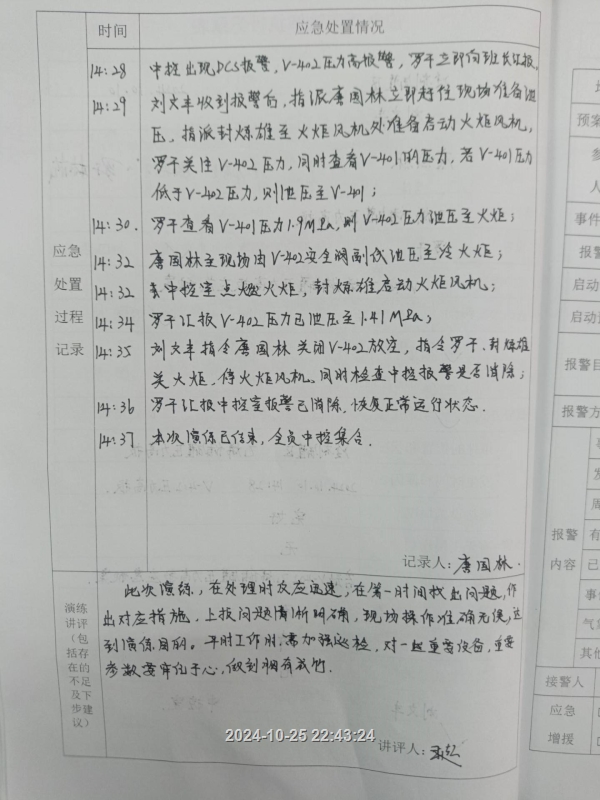 时间 应急处置情况
14:28 中控出现DCS报警，V-402压力高报警，罗干立即向班长汇报。
14:29 刘文丰收到报警后，指派唐国林立即赶往现场准备泄
压，指派封炼雄至火炬风机处准备启动火炬风机，
罗干关注V-402压力，同时查看V-401的压力，若V-401压力
低于V-402压力，则泄压至V-401；
14:30. 罗干查看V-401压力1.9MPa，则V-402压力泄压至火炬；
14:32 唐国林至现场由V-402安全阀副线泄压至冷火炬；
14:32 中控室点燃火炬，封炼雄启动火炬风机；
14:34 罗干汇报V-402压力已泄压至1.41MPa；
14:35 刘文丰指令唐国林关闭V-402放空，指令罗干、封炼雄
关火炬，停火炬风机。同时检查中控报警是否消除；
14:36 罗干汇报中控室报警已消除，恢复正常运行状态.
14:37 本次演练已结束，全员中控集合.
应急
处置
过程
记录
记录人：唐国林.
演练
讲评
（包
括存
在的
不足
及下
步建
议）
此次演练，在处理时反应迅速，在第一时间找出问题，作
出对应措施，上报问题清晰明确，现场操作准确无误，达
到演练目的。平时工作时，需加强巡检，对一些重要设备，重要
参数要牢记于心，做到胸有成竹.
讲评人：
2024-10-25 22:43:24
预案
参
人
事件
报警
启动
启动
报警目
报警方
报警
内容
事件
气象
其他
接警人
应急
增援